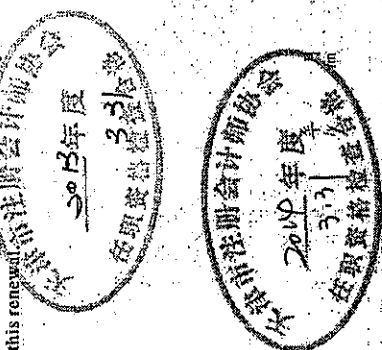 this renewal.
天津市注册会计师协会
2013年度
3.31
任职资格检查合格
天津市注册会计师协会
2014年度
3.31
任职资格检查合格